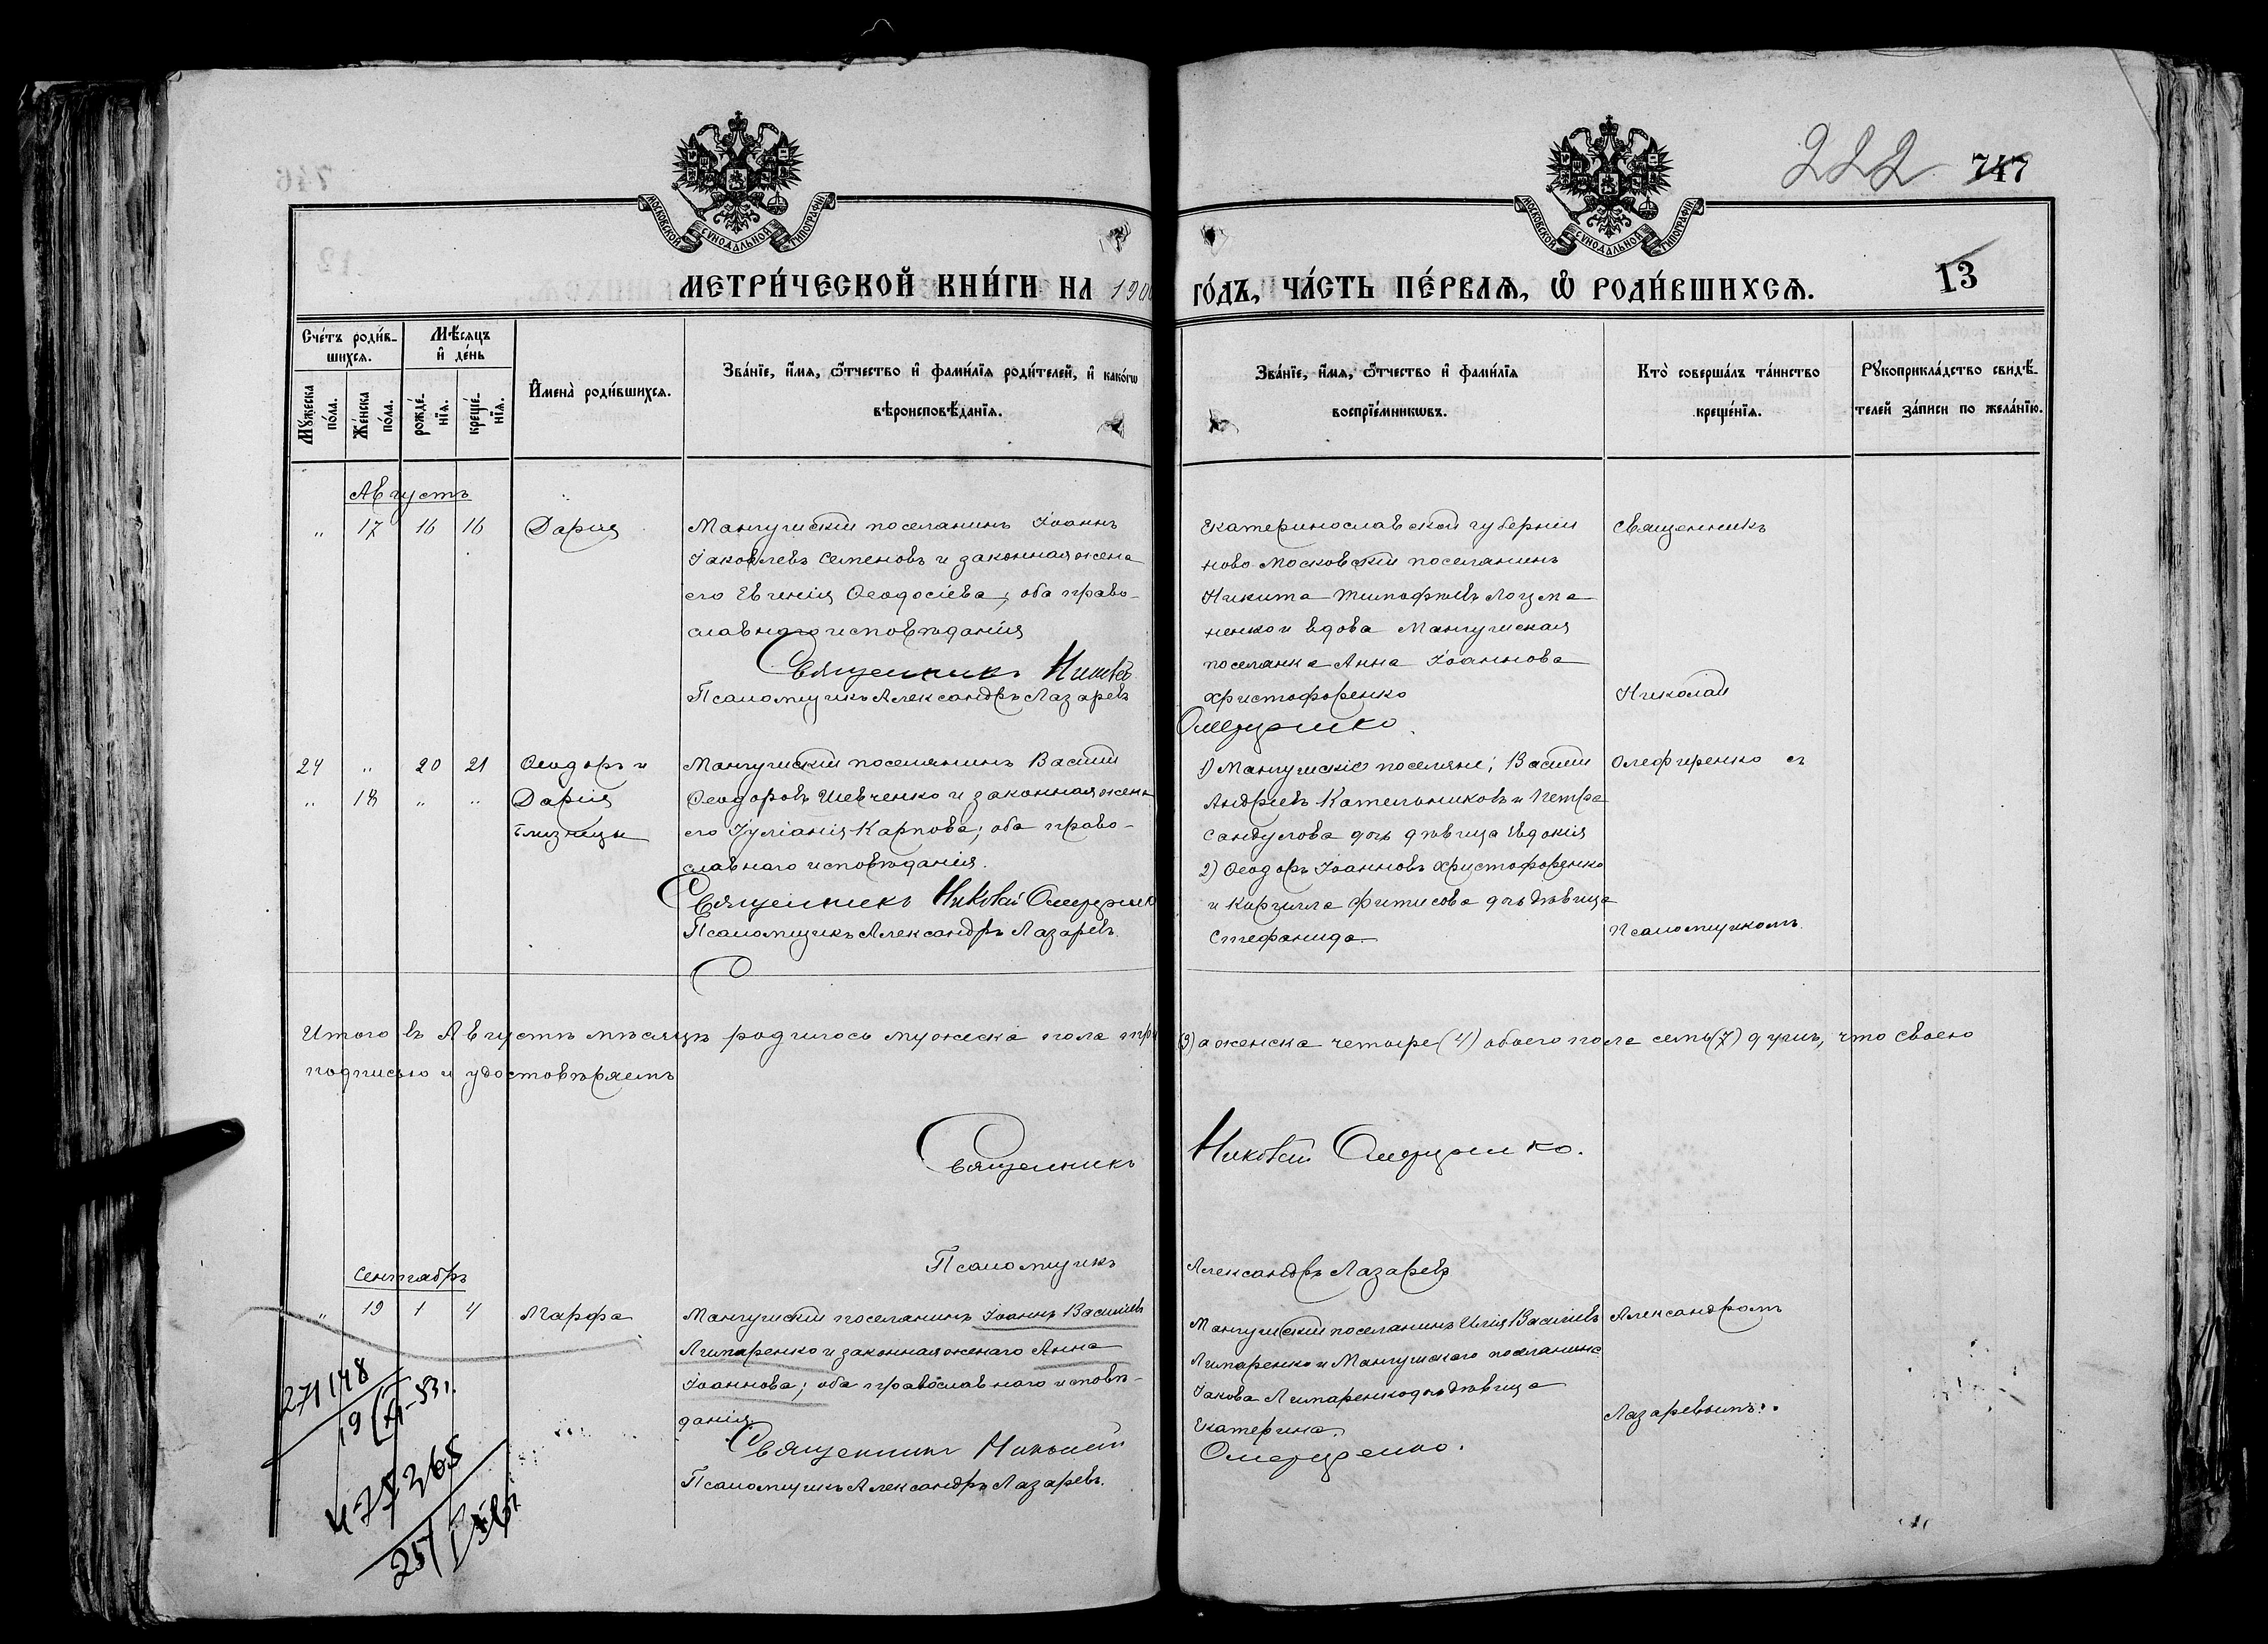 222 747
МОСКОВСКОЙ СУНОДАЛЬНОЙ ТИПОГРАФІИ
МОСКОВСКОЙ СУНОДАЛЬНОЙ ТИПОГРАФІИ
МЕТРИ́ЧЕСКОЙ КНИ́ГИ НА 1900 ГО́ДЪ, ЧА́СТЬ ПЕ́РВАЯ, Ѡ РОДИ́ВШИХСЯ. 13
Сче́тъ роди́в-
шихся.
Мѣ́сяцъ
и҆ де́нь
Мꙋ́жеска
по́ла.
Же́нска
по́ла.
рожде́-
нїя.
креще́-
нїя.
И҆мена̀ роди́вшихся.
Зва́нїе, и҆́мя, ѻ҆́тчество и҆ фами́лїя роди́телей, и҆ како́гѡ
вѣроисповѣ́данїя.
Зва́нїе, и҆́мя, ѻ҆́тчество и҆ фами́лїя
воспрїе́мникѡвъ.
Кто̀ соверша́лъ та́инство
креще́нїя.
Рꙋкоприкла́дство свидѣ́-
телей за́писи по жела́нїю.
Августъ
" 17 16 16 Дарія
Мангушскій поселянинъ Іоаннъ
Іаковлевъ Семеновъ и законная жена
его Евгенія Ѳеодосіева, оба право-
славнаго исповѣданія
Священникъ Николай
Псаломщикъ Александръ Лазаревъ
Екатеринославской губерніи
ново-Московскій поселянинъ
Никита Тимофѣевъ Лоцма-
ненко и вдова Мангушская
поселянка Анна Іоаннова
Христофоренко
Священникъ
Николай
24 " 20 21 Ѳеодоръ и
" 18 " " Дарія
близнецы
Мангушскій поселянинъ Василій
Ѳеодоровъ Шевченко и законная жена
его Іуліанія Карпова; оба право-
славнаго исповѣданія.
Священникъ Николай
Псаломщикъ Александръ Лазаревъ
1) Мангушскіе поселяне; Василій
Андреевъ Котельниковъ и Петра
Сандулова дочь дѣвица Евдокія
2) Ѳеодоръ Іоанновъ Христофоренко
и Кирилла Фитисова дочь дѣвица
Стефанида
Олефиренко съ
Псаломщикомъ
Итого въ Августѣ мѣсяцѣ родилось мужска пола три (3) а женска четыре (4) обоего пола семь (7) душъ, что своею
подписью и удостовѣряемъ
Священникъ Николай
Псаломщикъ Александръ Лазаревъ
Сентябрь
" 19 1 4 Марфа
Мангушскій поселянинъ Іоаннъ Василіевъ
Лимаренко и законная жена его Анна
Іоаннова; оба православнаго исповѣ-
данія
Священникъ Николай
Псаломщикъ Александръ Лазаревъ.
Мангушскій поселянинъ Илія Василіевъ
Лимаренко и Мангушскаго поселянина
Іакова Лимаренко дочь дѣвица
Екатерина
Александромъ
Лазаревымъ.
271148